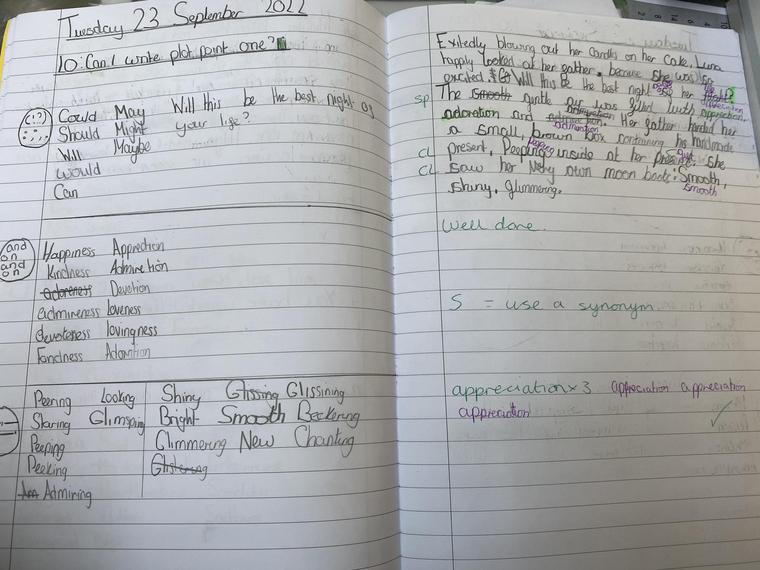 Tuesday 23 September 2022
LO: Can I write plot point one?
Could May Will this be the best night of
Should Might your life?
Will Maybe
would
Can
and on and on
Happiness Apprection
Kindness Admiretion
adoreness Devotion
admireness loveness
devoteness lovingness
Fondness Adoration
Peering Looking Shiny Glissing Glissining
Staring Glimsping Bright Smooth Beckering
Peeping Glimmering New Chanting
Peeking
Admiring
Exitedly blowing out her candles on her cake, Luna
happily looked at her father. because she was so
excited. Will this be the best night of her life?
sp The smooth gentle air was filled with appreciation,
appreciation
adoration and admiration. Her father handed her
admiration
a small, brown box containing his handmade
CL present, Peeping inside at her present she
peeping gift
CL saw her New own moon boots: Smooth,
smooth
shiny, glimmering.
well done.
S = use a synonym.
appreciation x 3 appreciation appreciation
appreciation